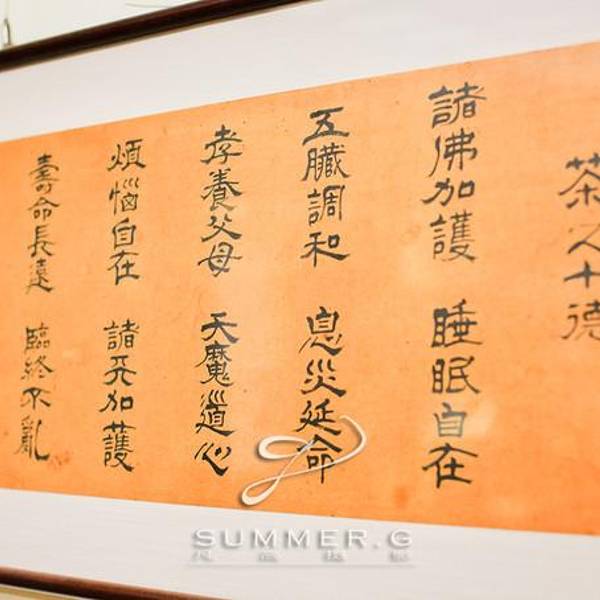 茶之十德
諸佛加護 睡眠自在
五臟調和 息災延命
孝養父母 天魔道心
煩惱自在 諸天加護
壽命長遠 臨終不亂
SUMMER.G